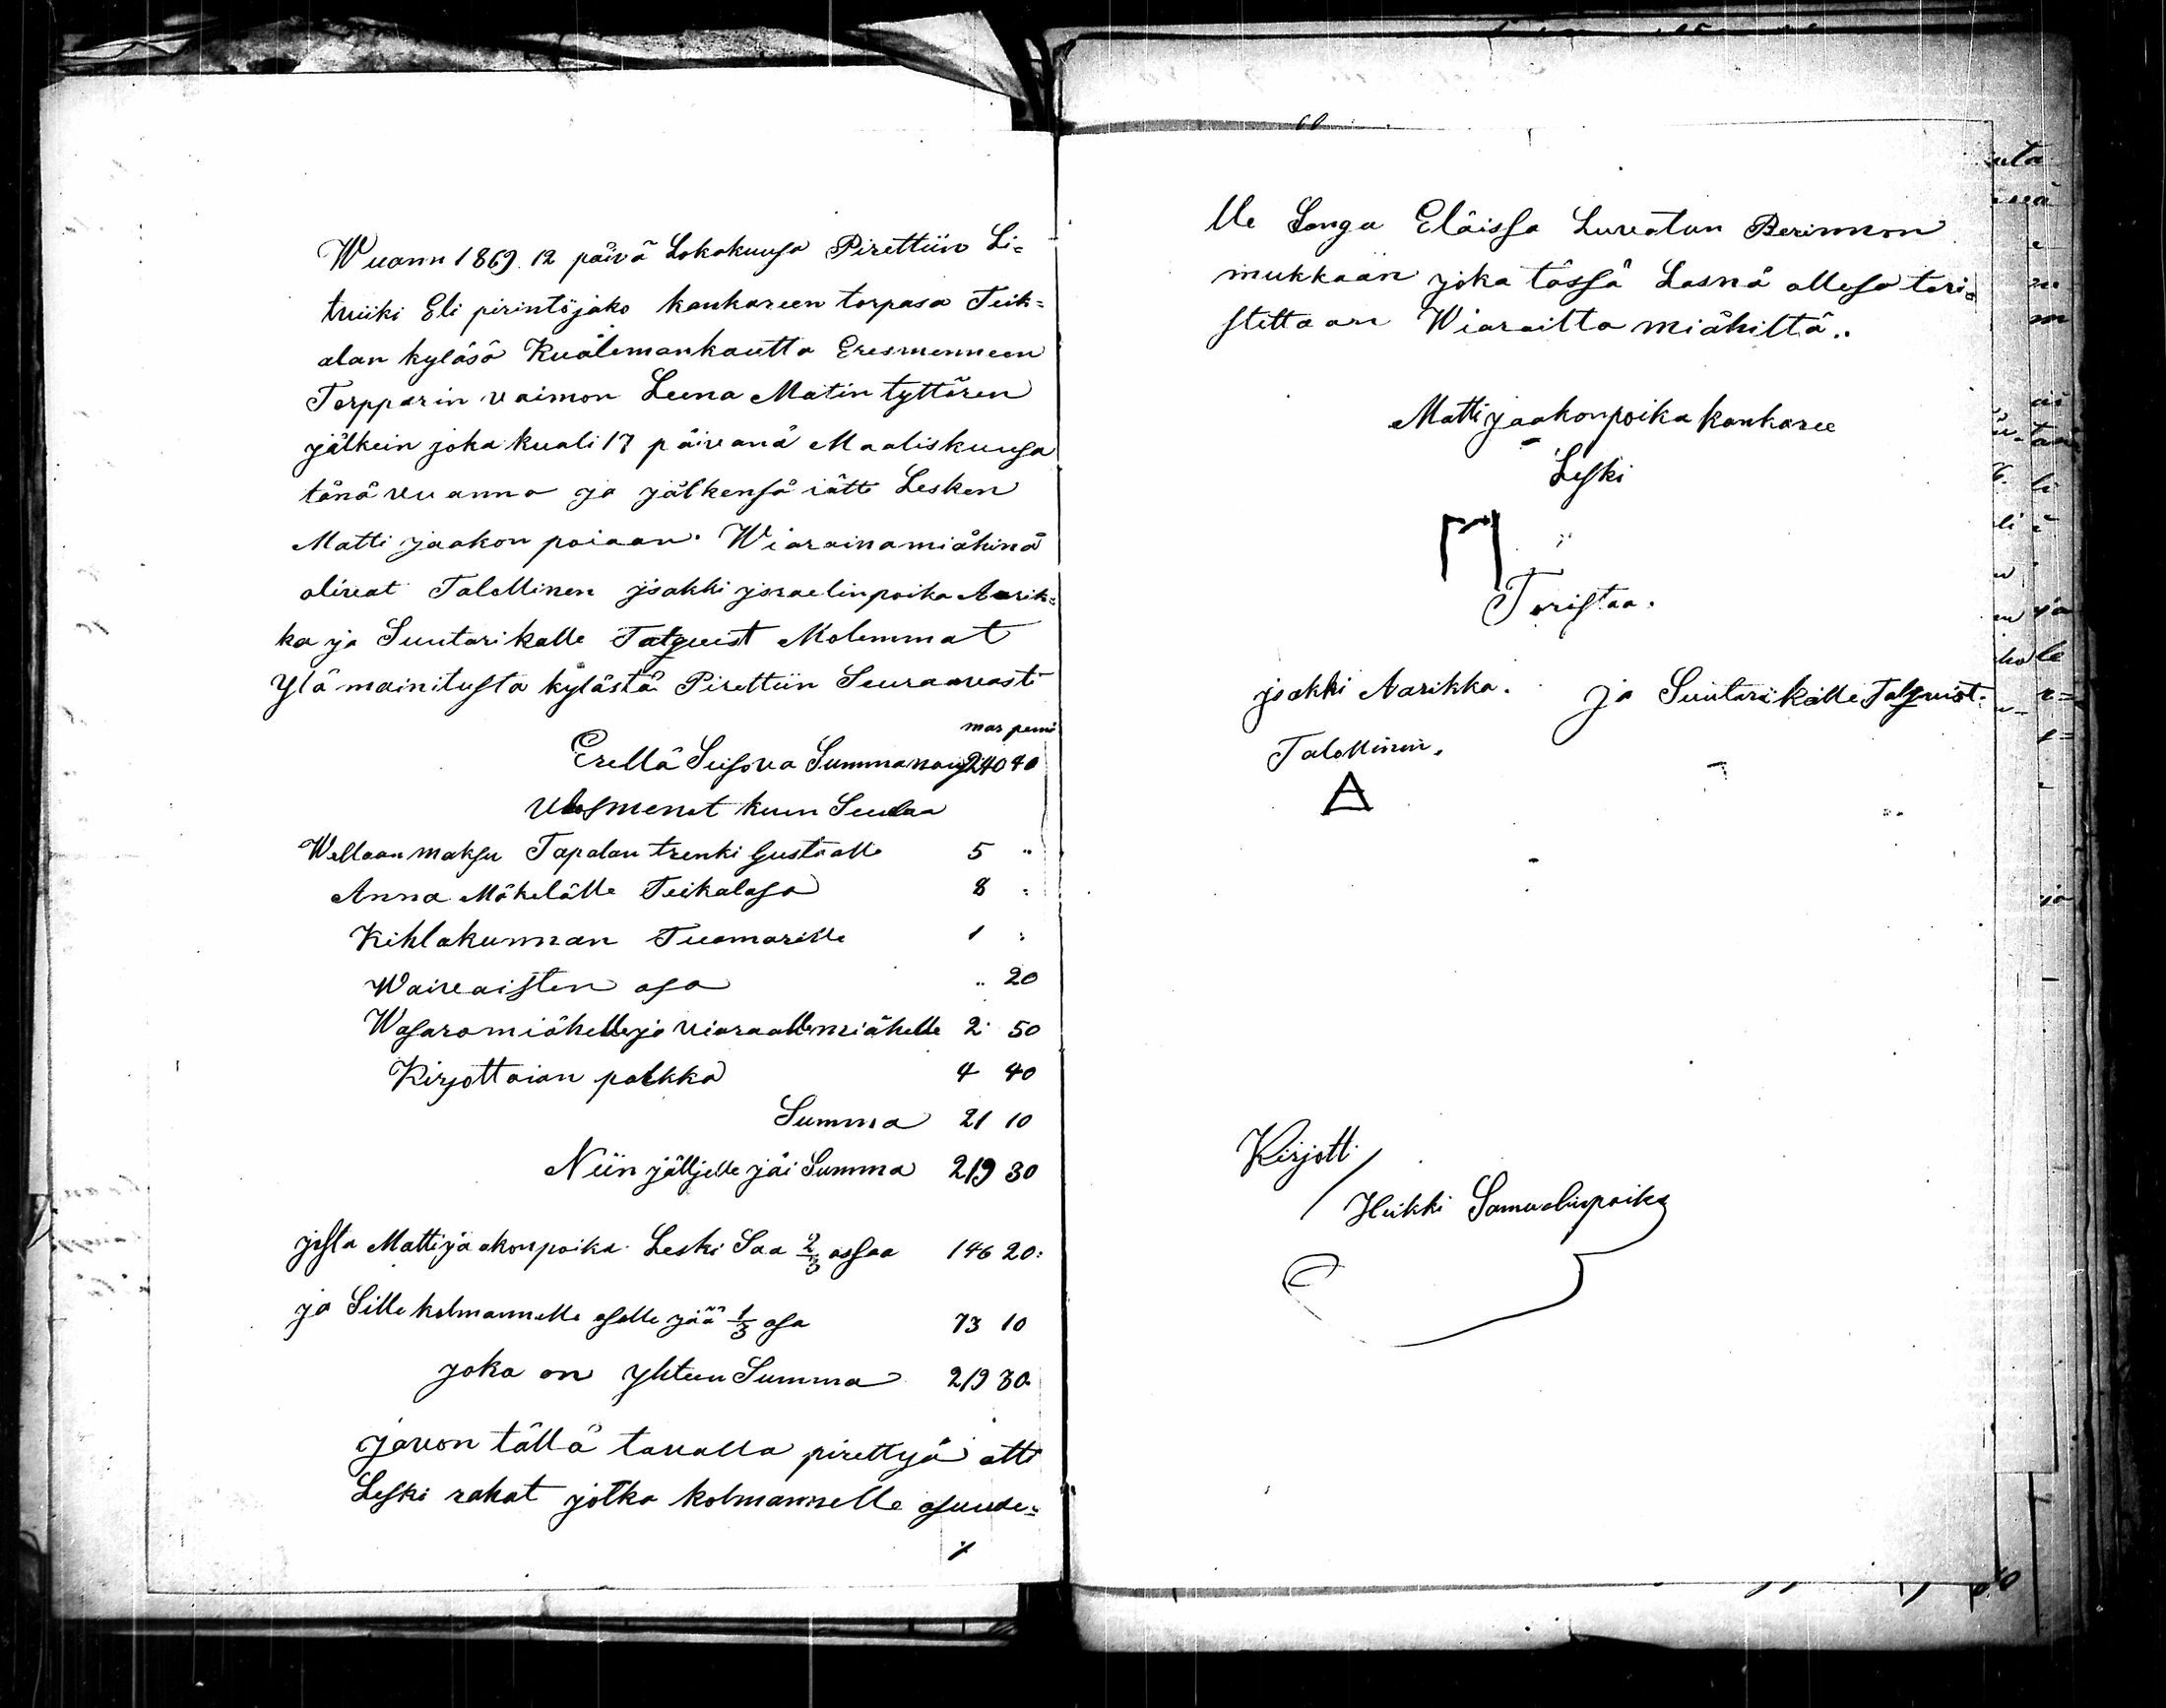 Wuann 1869. 12 päivä Lokakuusa Pirettiin Li=
truiki Eli pirintöjako kankareen torpasa Teik=
alan kyläsä Kuälemankautta Eresmenneen
Torpparin vaimon Leena Matin tyttären
jälkein joka kuali 17 päivänä Maaliskuusa
tänä vuanna ja jälkensä iätti Lesken
Matti jaakon poiaan. Wiarainamiähinä
olivat Talollinen jsakki jsraelinpoika Aarik=
ka ja Suutari kalle Talqvist Molemmat
Ylä mainitusta kylästä Pirettiin Seuraavasti
mar peni
Erellä Seisova Summa 240 40
Ulosmenot kuin Seulaa
Wellaan maksu Tapalan trenki Gustaalle 5 "
Anna Mäkelälle Teikalasa 8 :
Kihlakunnan Tuomarille 1 :
Waivaisten osa .. 20
Wasaramiähelle ja viaraallemiähelle 2 50
Kirjottaian palkka 4 40
Summa 21 10
Niin jälljelle jäi Summa 219 30
josta Matti jaakonpoika Leski Saa 2/3 ossaa 146 20:
ja Sille kolmannelle osalle jää 1/3 osa 73 10
joka on yhteen Summa 219 30
javon tällä tavalla pirettyä otti
Leski rahat jotka kolmannelle osuude=
⁒
lle Langa Eläissä Luvatun Perinnön
mukkaan joka tässä Lasnä ollesa tori=
stettaan Wiaraitta miähiltä..
Matti jaakonpoika kankaree
Leski
M
Toristaa.
jsakki Aarikka. ja Suutari kalle Talqvist.
Talollinen.
A
Kirjotti
Heikki Samuelinpoika